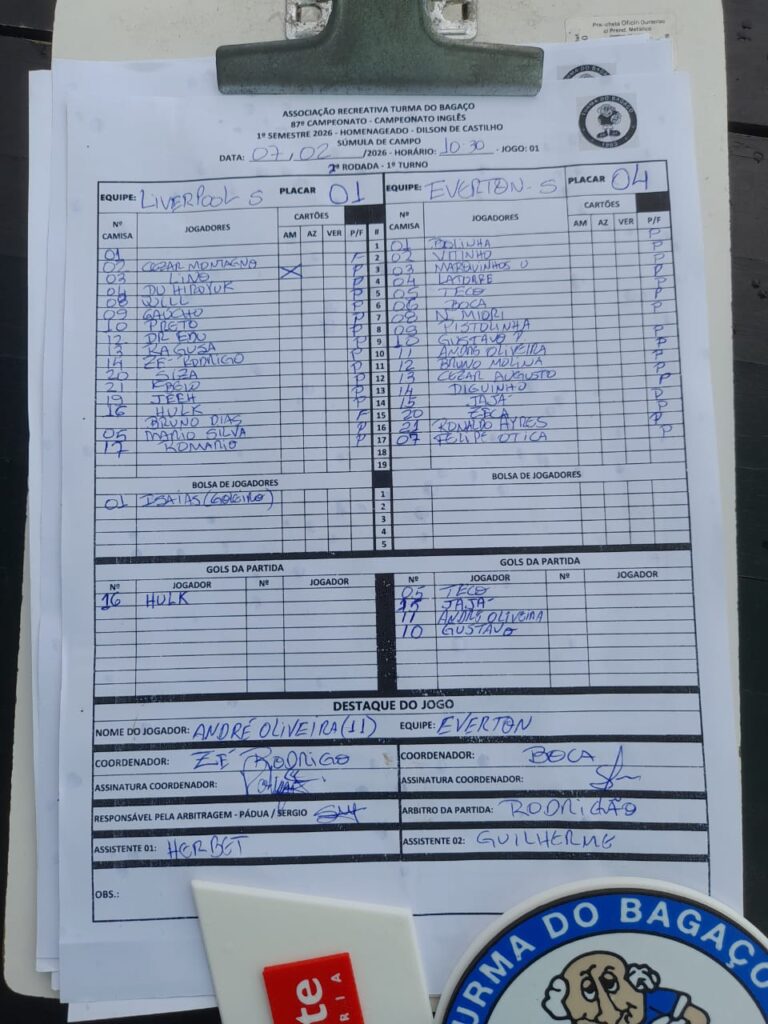 ASSOCIAÇÃO RECREATIVA TURMA DO BAGAÇO
87º CAMPEONATO - CAMPEONATO INGLÊS
1º SEMESTRE 2026 - HOMENAGEADO - DILSON DE CASTILHO
SÚMULA DE CAMPO
DATA: 07, 02 /2026 - HORÁRIO: 10:30 - JOGO: 01
2ª RODADA - 1º TURNO
EQUIPE: LIVERPOOL S PLACAR 01 EQUIPE: EVERTON-S PLACAR 04
Nº CAMISA JOGADORES CARTÕES AM AZ VER P/F # Nº CAMISA JOGADORES CARTÕES AM AZ VER P/F
01 1 01 BOLINHA P
02 CEZAR MONTAGNA F 2 02 VITINHO P
03 LINO X P 3 03 MARQUINHOS U P
04 DU HIROYUK P 4 04 LATORRE P
08 WILL P 5 05 TECO P
09 GAÚCHO P 6 06 BOCA P
10 PRETO P 7 08 N. MIORI
12 DR EDU P 8 09 PISTOLINHA P
13 RAGUSA P 9 10 GUSTAVO P
14 ZÉ RODRIGO P 10 11 ANDRÉ OLIVEIRA P
20 SIZA P 11 12 BRUNO MOLINA P
21 FABIO P 12 13 CEZAR AUGUSTO P
19 JEEH P 13 14 DIGUINHO
16 HULK P 14 15 JAJÁ P
BRUNO DIAS F 15 20 ZECA P
05 MARIO SILVA P 16 21 RONALDO AYRES P
17 ROMARIO P 17 07 FELIPE OTICA P
18
19
BOLSA DE JOGADORES BOLSA DE JOGADORES
01 ISAIAS (GOLEIRO) 1
2
3
4
5
GOLS DA PARTIDA GOLS DA PARTIDA
Nº JOGADOR Nº JOGADOR Nº JOGADOR Nº JOGADOR
16 HULK 05 TECO
15 JAJÁ
11 ANDRÉ OLIVEIRA
10 GUSTAVO
DESTAQUE DO JOGO
NOME DO JOGADOR: ANDRÉ OLIVEIRA (11) EQUIPE: EVERTON
COORDENADOR: ZÉ RODRIGO COORDENADOR: BOCA
ASSINATURA COORDENADOR: ASSINATURA COORDENADOR:
RESPONSÁVEL PELA ARBITRAGEM - PÁDUA / SERGIO ARBITRO DA PARTIDA: RODRIGÃO
ASSISTENTE 01: HERBET ASSISTENTE 02: GUILHERME
OBS.:
TURMA DO BAGAÇO